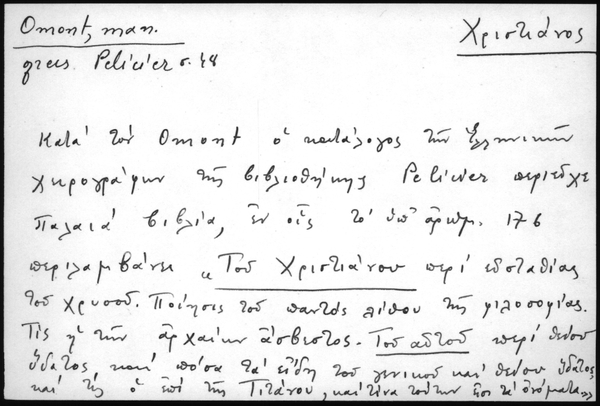 Omont, man.
Χριστιάνος
grecs Pelicier σ. 48
Κατά τόν Omont ὁ κατάλογος τῶν Ἑλληνικῶν
χειρογράφων τῆς βιβλιοθήκης Pelicier περιεῖχε
Παλαιά βιβλία, ἐν οἷς τό ὑπ' ἀριθμ. 176
περιλαμβάνει "Τοῦ Χριστιάνου περί εὐσταθίας
τοῦ χρυσοῦ. Ποίησις τοῦ παντός λίθου τῆς φιλοσοφίας.
Τίς ἡ τῶν ἀρχαίων ἄσβεστος. Τοῦ αὐτοῦ περί θείου
ὕδατος, καί πόσα τά εἴδη τοῦ γενικοῦ καί θείου ὕδατος,
καί τίς ὁ ἐπί τῆς Τιτάνου, καί τίνα τούτων τά ὀνόματα"